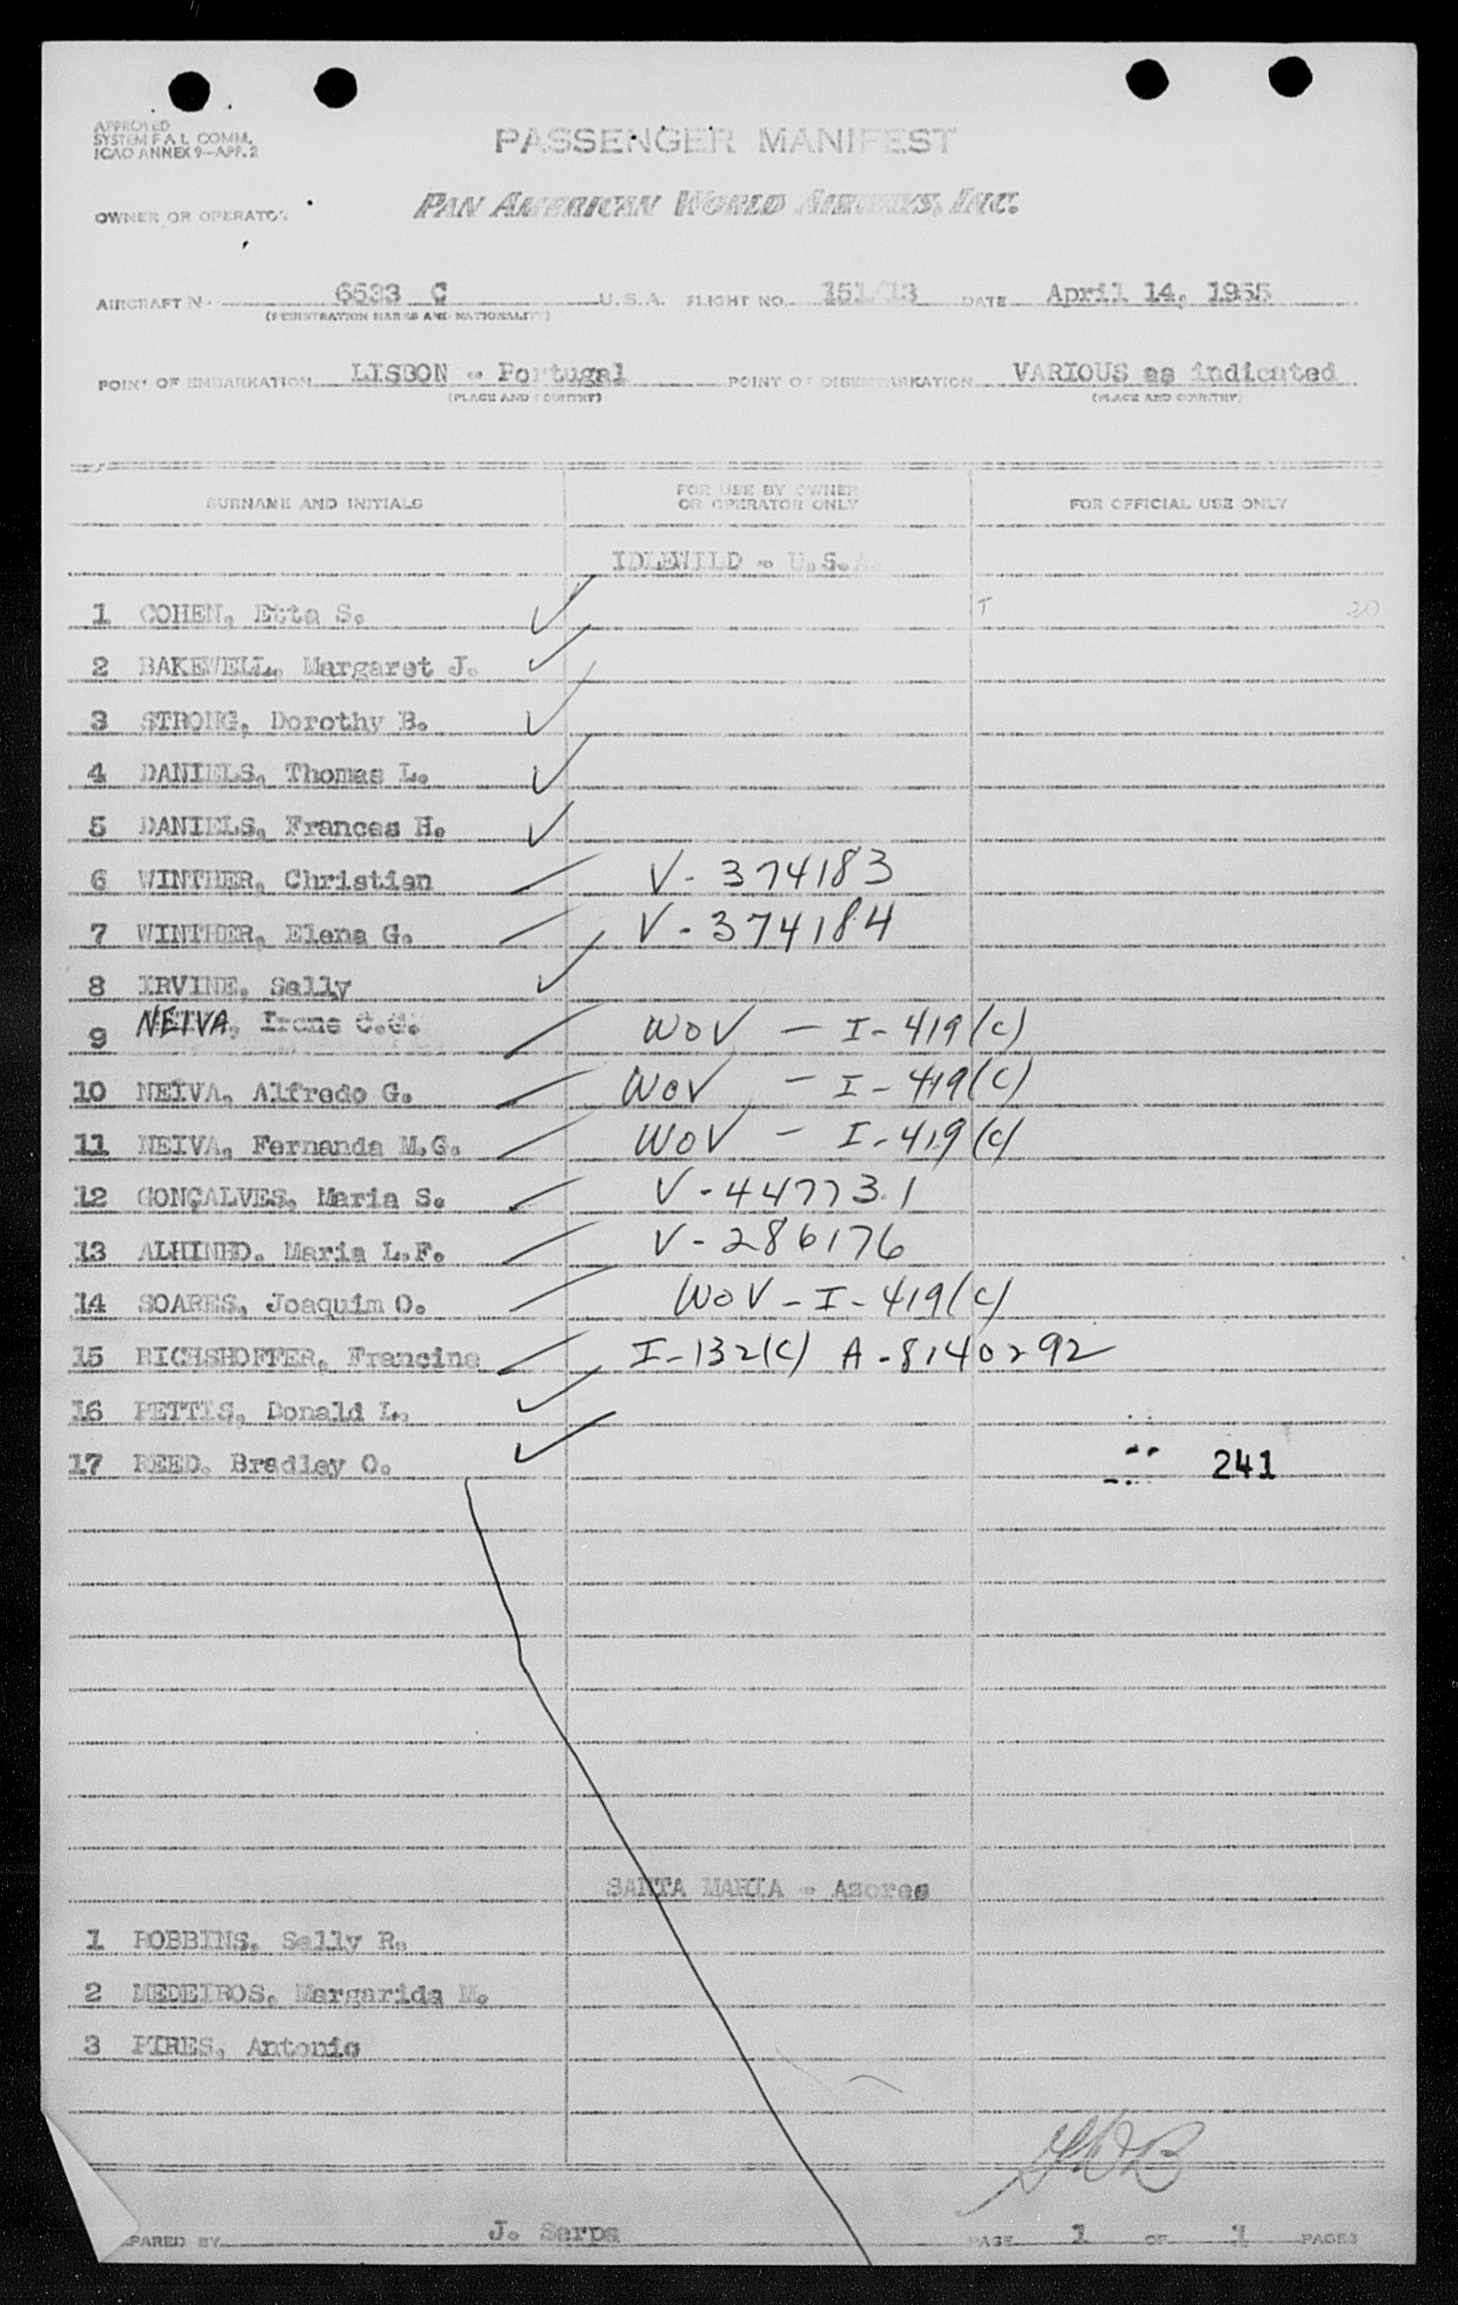 APPROVED
SYSTEM F.A.L. COMM.
ICAO ANNEX 9—APP. 2
PASSENGER MANIFEST
OWNER OR OPERATOR
PAN AMERICAN WORLD AIRWAYS, INC.
AIRCRAFT N- 6533 C U.S.A. FLIGHT NO. 151/13 DATE April 14, 1955
(REGISTRATION MARKS AND NATIONALITY)
POINT OF EMBARKATION LISBON - Portugal POINT OF DISEMBARKATION VARIOUS as indicated
(PLACE AND COUNTRY) (PLACE AND COUNTRY)
SURNAME AND INITIALS FOR USE BY OWNER OR OPERATOR ONLY FOR OFFICIAL USE ONLY
IDLEWILD - U.S.A.
1 COHEN, Etta S. T 20
2 BAKEWELL, Margaret J.
3 STRONG, Dorothy B.
4 DANIELS, Thomas L.
5 DANIELS, Frances H.
6 WINTHER, Christian V- 374183
7 WINTHER, Elena G. V- 374184
8 IRVINE, Sally
9 NEIVA, Irene C.G. WOV - I- 419(c)
10 NEIVA, Alfredo G. WOV - I- 419(c)
11 NEIVA, Fernanda M.G. WOV - I- 419(c)
12 GONÇALVES, Maria S. V- 447731
13 ALHINHO. Maria L.F. V- 286176
14 SOARES, Joaquim O. WOV - I- 419(c)
15 RICHSHOFFER, Francine I-132(c) A-8140292
16 PETTIS, Donald L.
17 REED. Bradley O. 241
SANTA MARIA - Azores
1 ROBBINS. Sally R.
2 MEDEIROS. Margarida M.
3 PIRES, Antonio
PARED BY J. Serpa PAGE 1 OF 1 PAGES